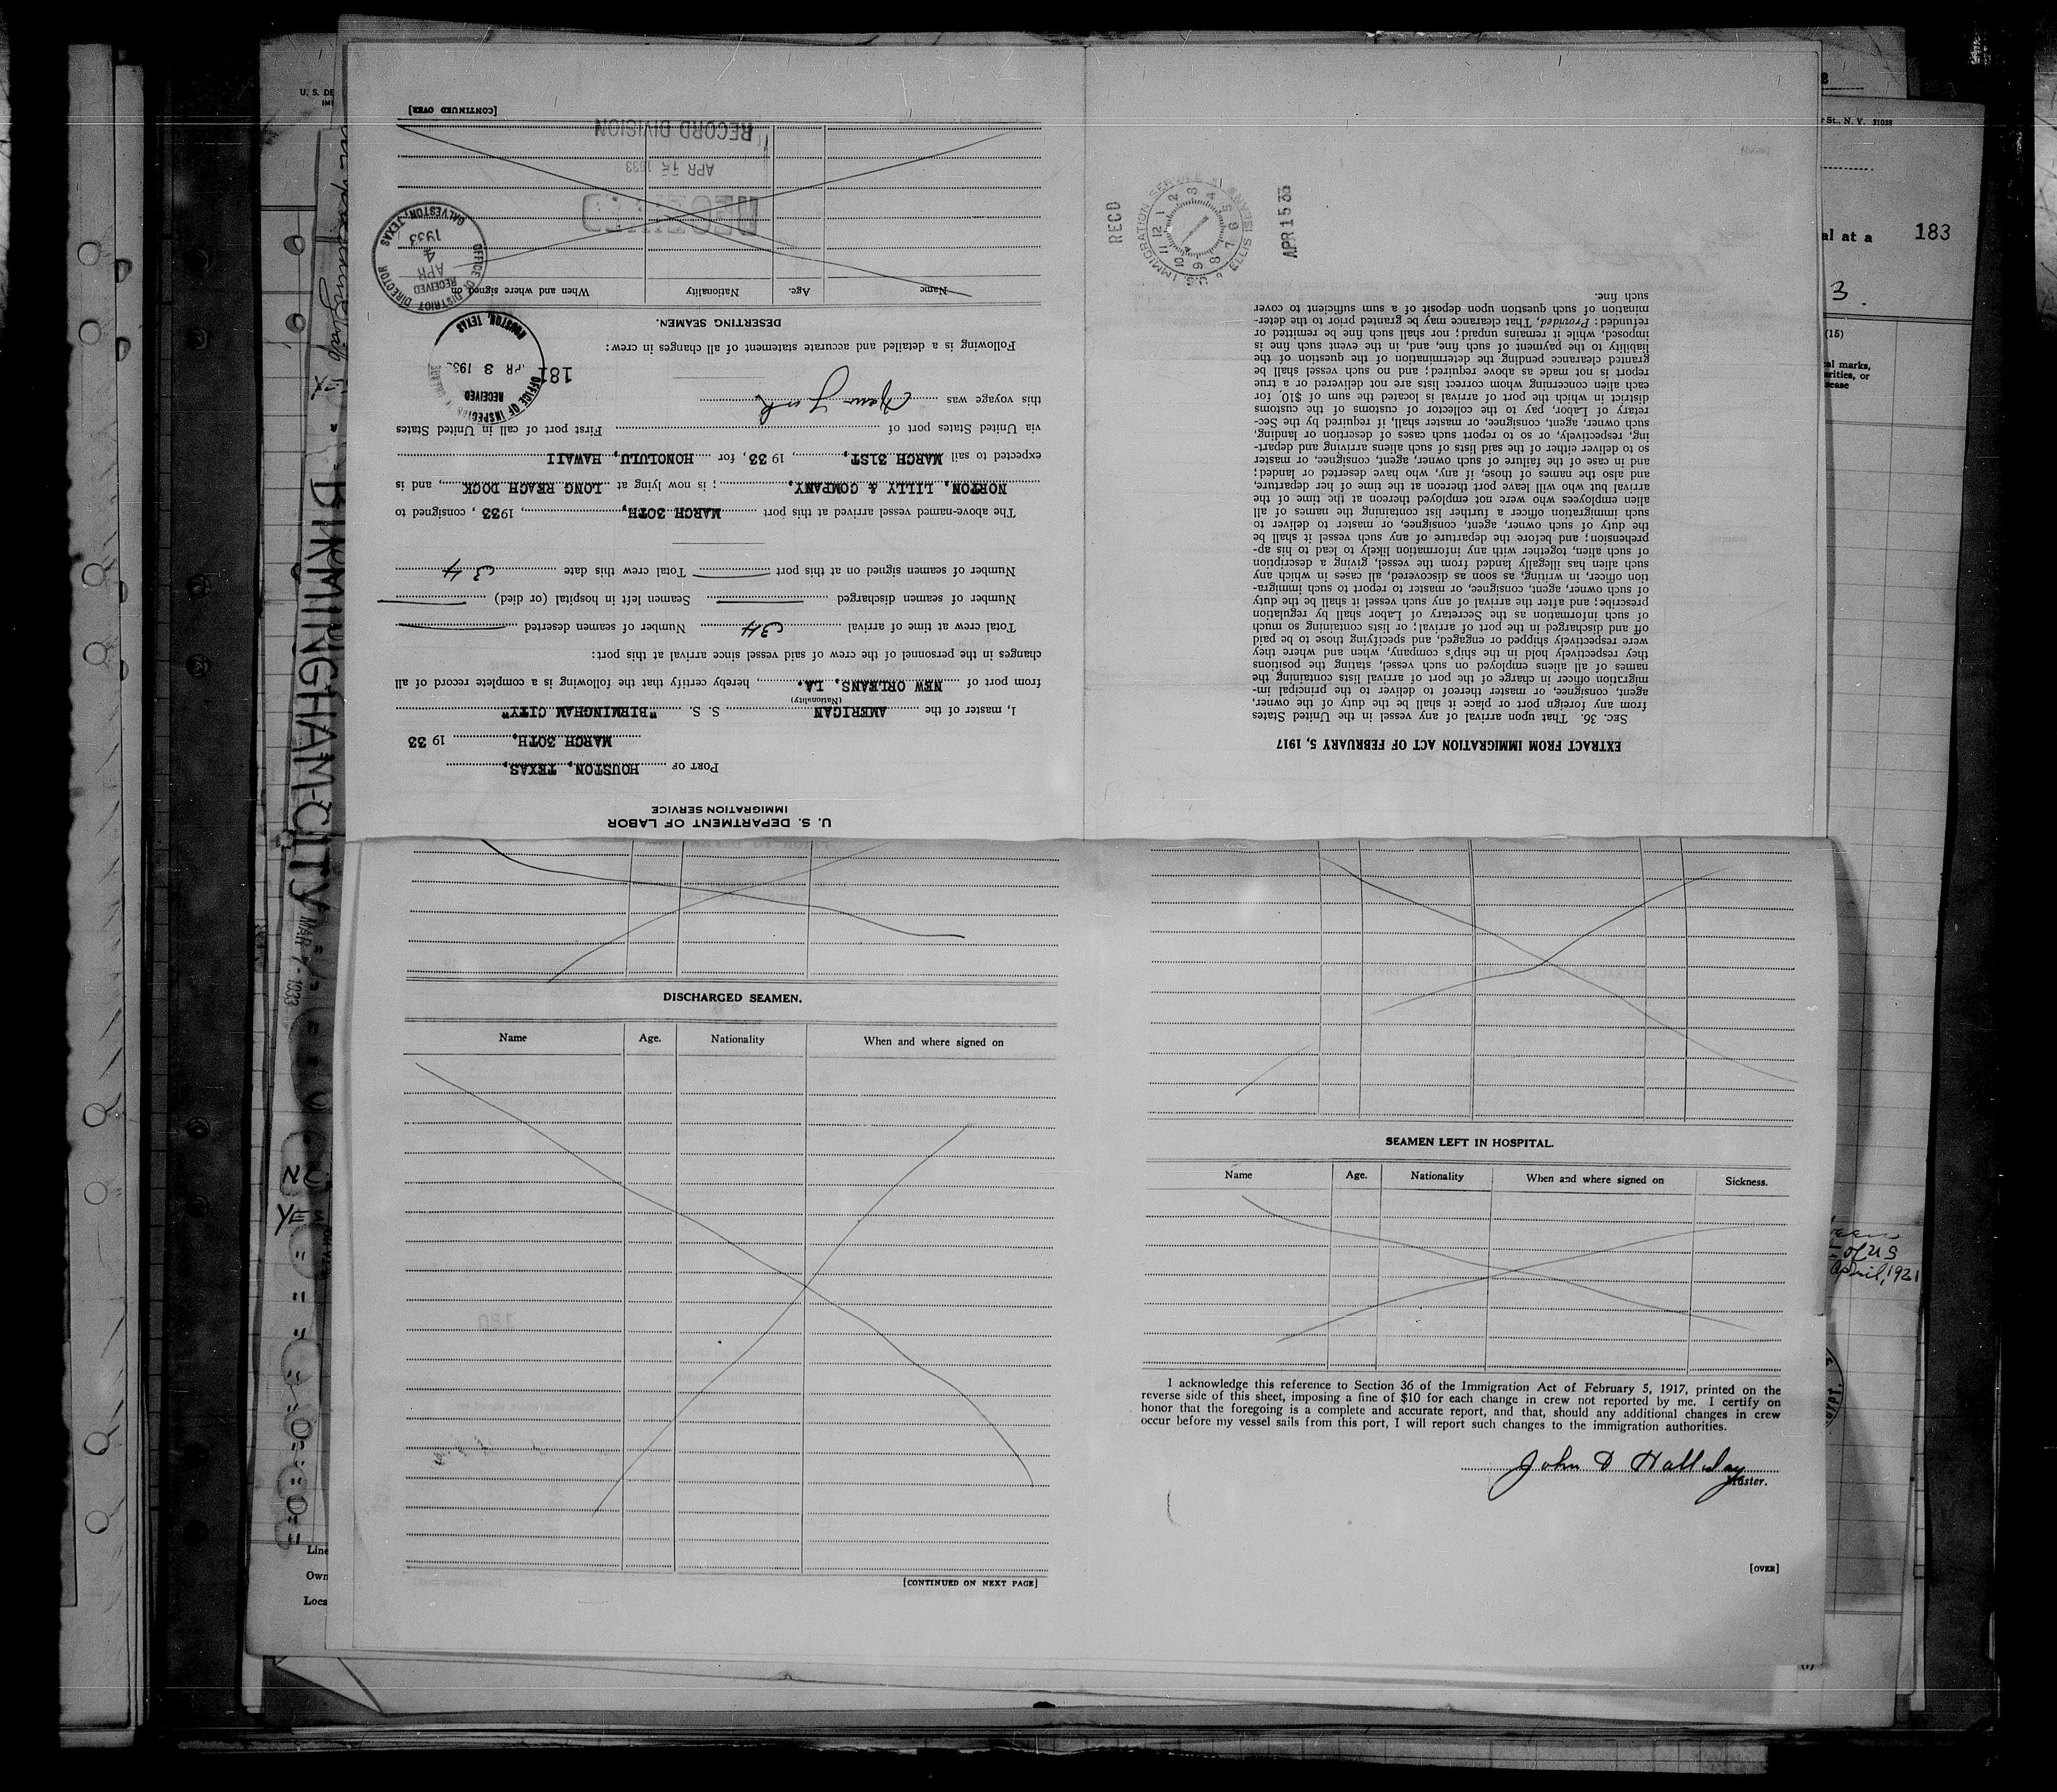 U. S. DEPARTMENT OF LABOR
IMMIGRATION SERVICE
PORT OF HOUSTON, TEXAS,
MARCH 30TH, 1933
I, master of the AMERICAN S. S. "BIRMINGHAM CITY"
(Nationality)
from port of NEW ORLEANS, LA., hereby certify that the following is a complete record of all
changes in the personnel of the crew of said vessel since arrival at this port:
Total crew at time of arrival 34 Number of seamen deserted
Number of seamen discharged Seamen left in hospital (or died)
Number of seamen signed on at this port Total crew this date 34
The above-named vessel arrived at this port MARCH 30TH, 1933, consigned to
NORTON, LILLY & COMPANY, ; is now lying at LONG REACH DOCK, and is
expected to sail MARCH 31ST, 1933, for HONOLULU, HAWAII
via United States port of First port of call in United States
this voyage was New York
181
Following is a detailed and accurate statement of all changes in crew:
DESERTING SEAMEN.
Name Age. Nationality When and where signed on
OFFICE OF INSPECTOR
RECEIVED
APR 3 1933
HOUSTON, TEXAS
OFFICE OF DISTRICT DIRECTOR
RECEIVED
APR
4
1933
GALVESTON, TEXAS
RECEIVED
APR 15 1933
RECORD DIVISION
[CONTINUED OVER]
EXTRACT FROM IMMIGRATION ACT OF FEBRUARY 5, 1917
SEC. 36. That upon arrival of any vessel in the United States
from any foreign port or place it shall be the duty of the owner,
agent, consignee, or master thereof to deliver to the principal im-
migration officer in charge of the port of arrival lists containing the
names of all aliens employed on such vessel, stating the positions
they respectively hold in the ship's company, when and where they
were respectively shipped or engaged, and specifying those to be paid
off and discharged in the port of arrival; or lists containing so much
of such information as the Secretary of Labor shall by regulation
prescribe; and after the arrival of any such vessel it shall be the duty
of such owner, agent, consignee, or master to report to such immigra-
tion officer, in writing, as soon as discovered, all cases in which any
such alien has illegally landed from the vessel, giving a description
of such alien, together with any information likely to lead to his ap-
prehension; and before the departure of any such vessel it shall be
the duty of such owner, agent, consignee, or master to deliver to
such immigration officer a further list containing the names of all
alien employees who were not employed thereon at the time of the
arrival but who will leave port thereon at the time of her departure,
and also the names of those, if any, who have deserted or landed;
and in case of the failure of such owner, agent, consignee, or master
so to deliver either of the said lists of such aliens arriving and depart-
ing, respectively, or so to report such cases of desertion or landing,
such owner, agent, consignee, or master shall, if required by the Sec-
retary of Labor, pay to the collector of customs of the customs
district in which the port of arrival is located the sum of $10, for
each alien concerning whom correct lists are not delivered or a true
report is not made as above required; and no such vessel shall be
granted clearance pending the determination of the question of the
liability to the payment of such fine, and, in the event such fine is
imposed, while it remains unpaid; nor shall such fine be remitted or
refunded: Provided, That clearance may be granted prior to the deter-
mination of such question upon deposit of a sum sufficient to cover
such fine.
RECD
U.S. IMMIGRATION SERVICE ELLIS ISLAND
APR 15 33
DISCHARGED SEAMEN.
Name Age. Nationality When and where signed on
[CONTINUED ON NEXT PAGE]
SEAMEN LEFT IN HOSPITAL.
Name Age. Nationality When and where signed on Sickness.
I acknowledge this reference to Section 36 of the Immigration Act of February 5, 1917, printed on the
reverse side of this sheet, imposing a fine of $10 for each change in crew not reported by me. I certify on
honor that the foregoing is a complete and accurate report, and that, should any additional changes in crew
occur before my vessel sails from this port, I will report such changes to the immigration authorities.
John D Halliday
Master.
[OVER]
BIRMINGHAM-CITY
MAR 1933
NO
YES
U. S. DE
Line
Own
Loca
St., N. Y. 31038
al at a
183
3
(15)
al marks,
arities, or
sease
of US
April, 1921